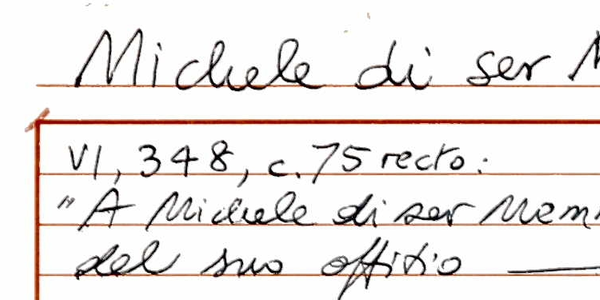 Michele di ser
VI, 348, c. 75 recto:
"A Michele di ser Mem
del suo offitio